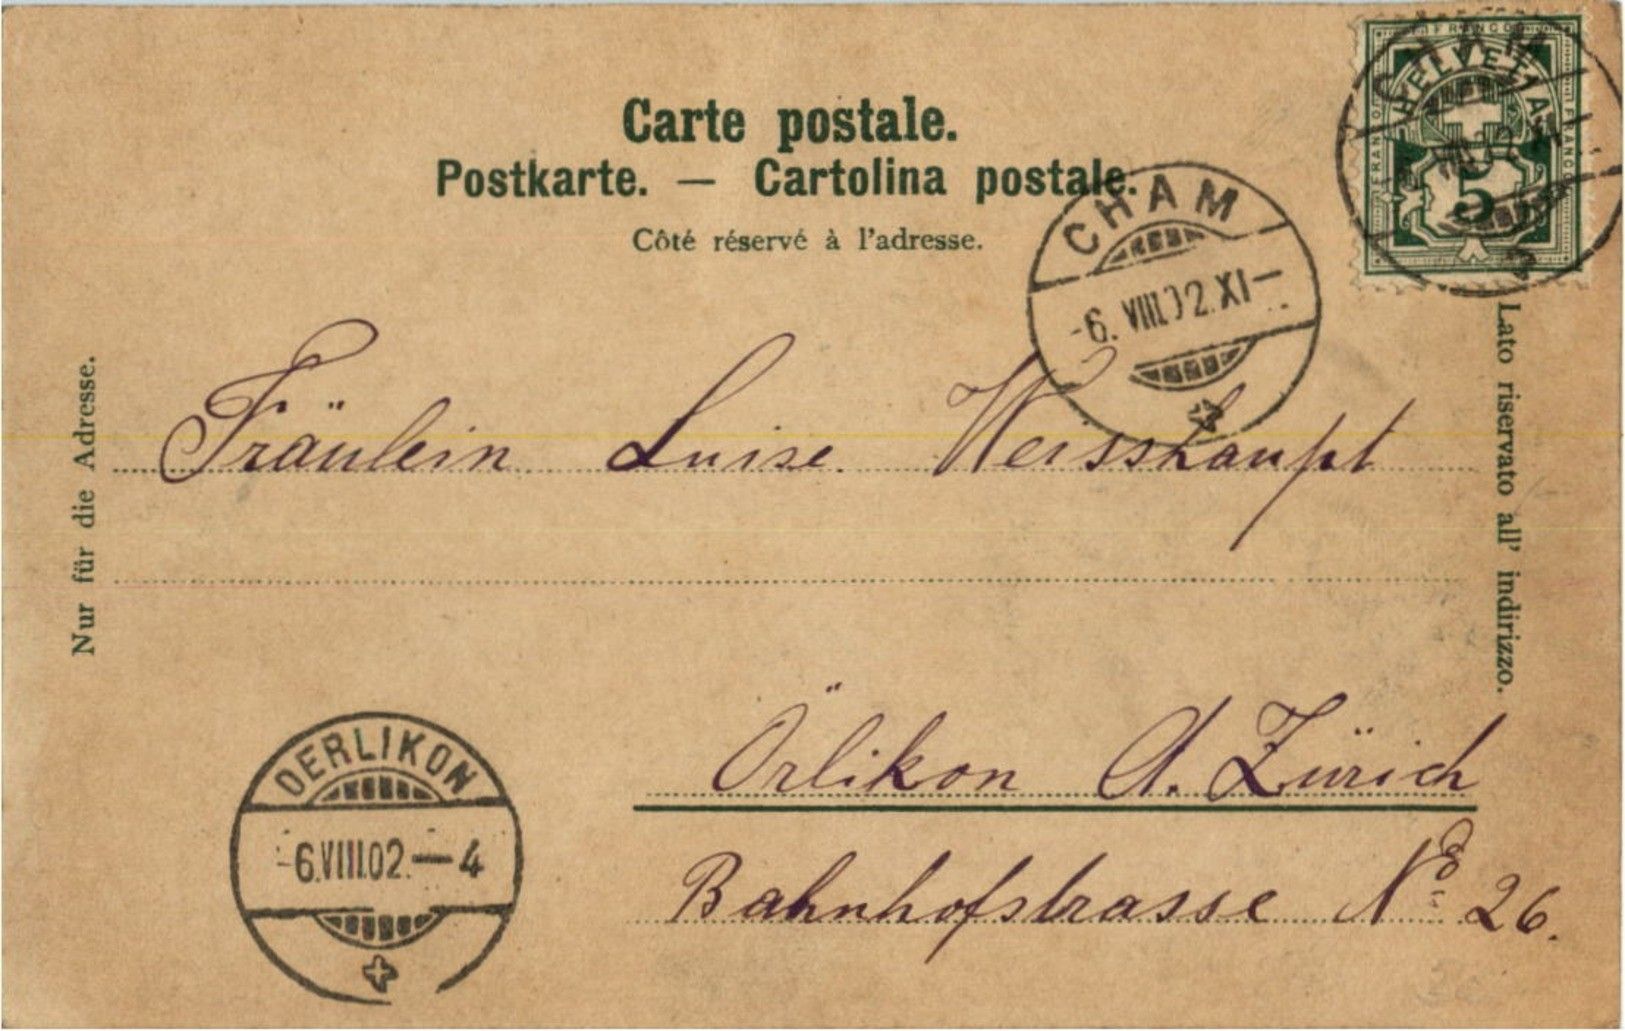 Carte postale.
Postkarte. — Cartolina postale.
Côté réservé à l'adresse.
FRANCO
HELVETIA
FRANCO
FRANCO
5
CHAM
CHAM
-6. VIII.02.XI-
Nur für die Adresse.
Lato riservato all' indirizzo.
Fräulein Luise Weisshaupt
Örlikon A. Zürich
Bahnhofstrasse No 26.
OERLIKON
-6.VIII.02.-4